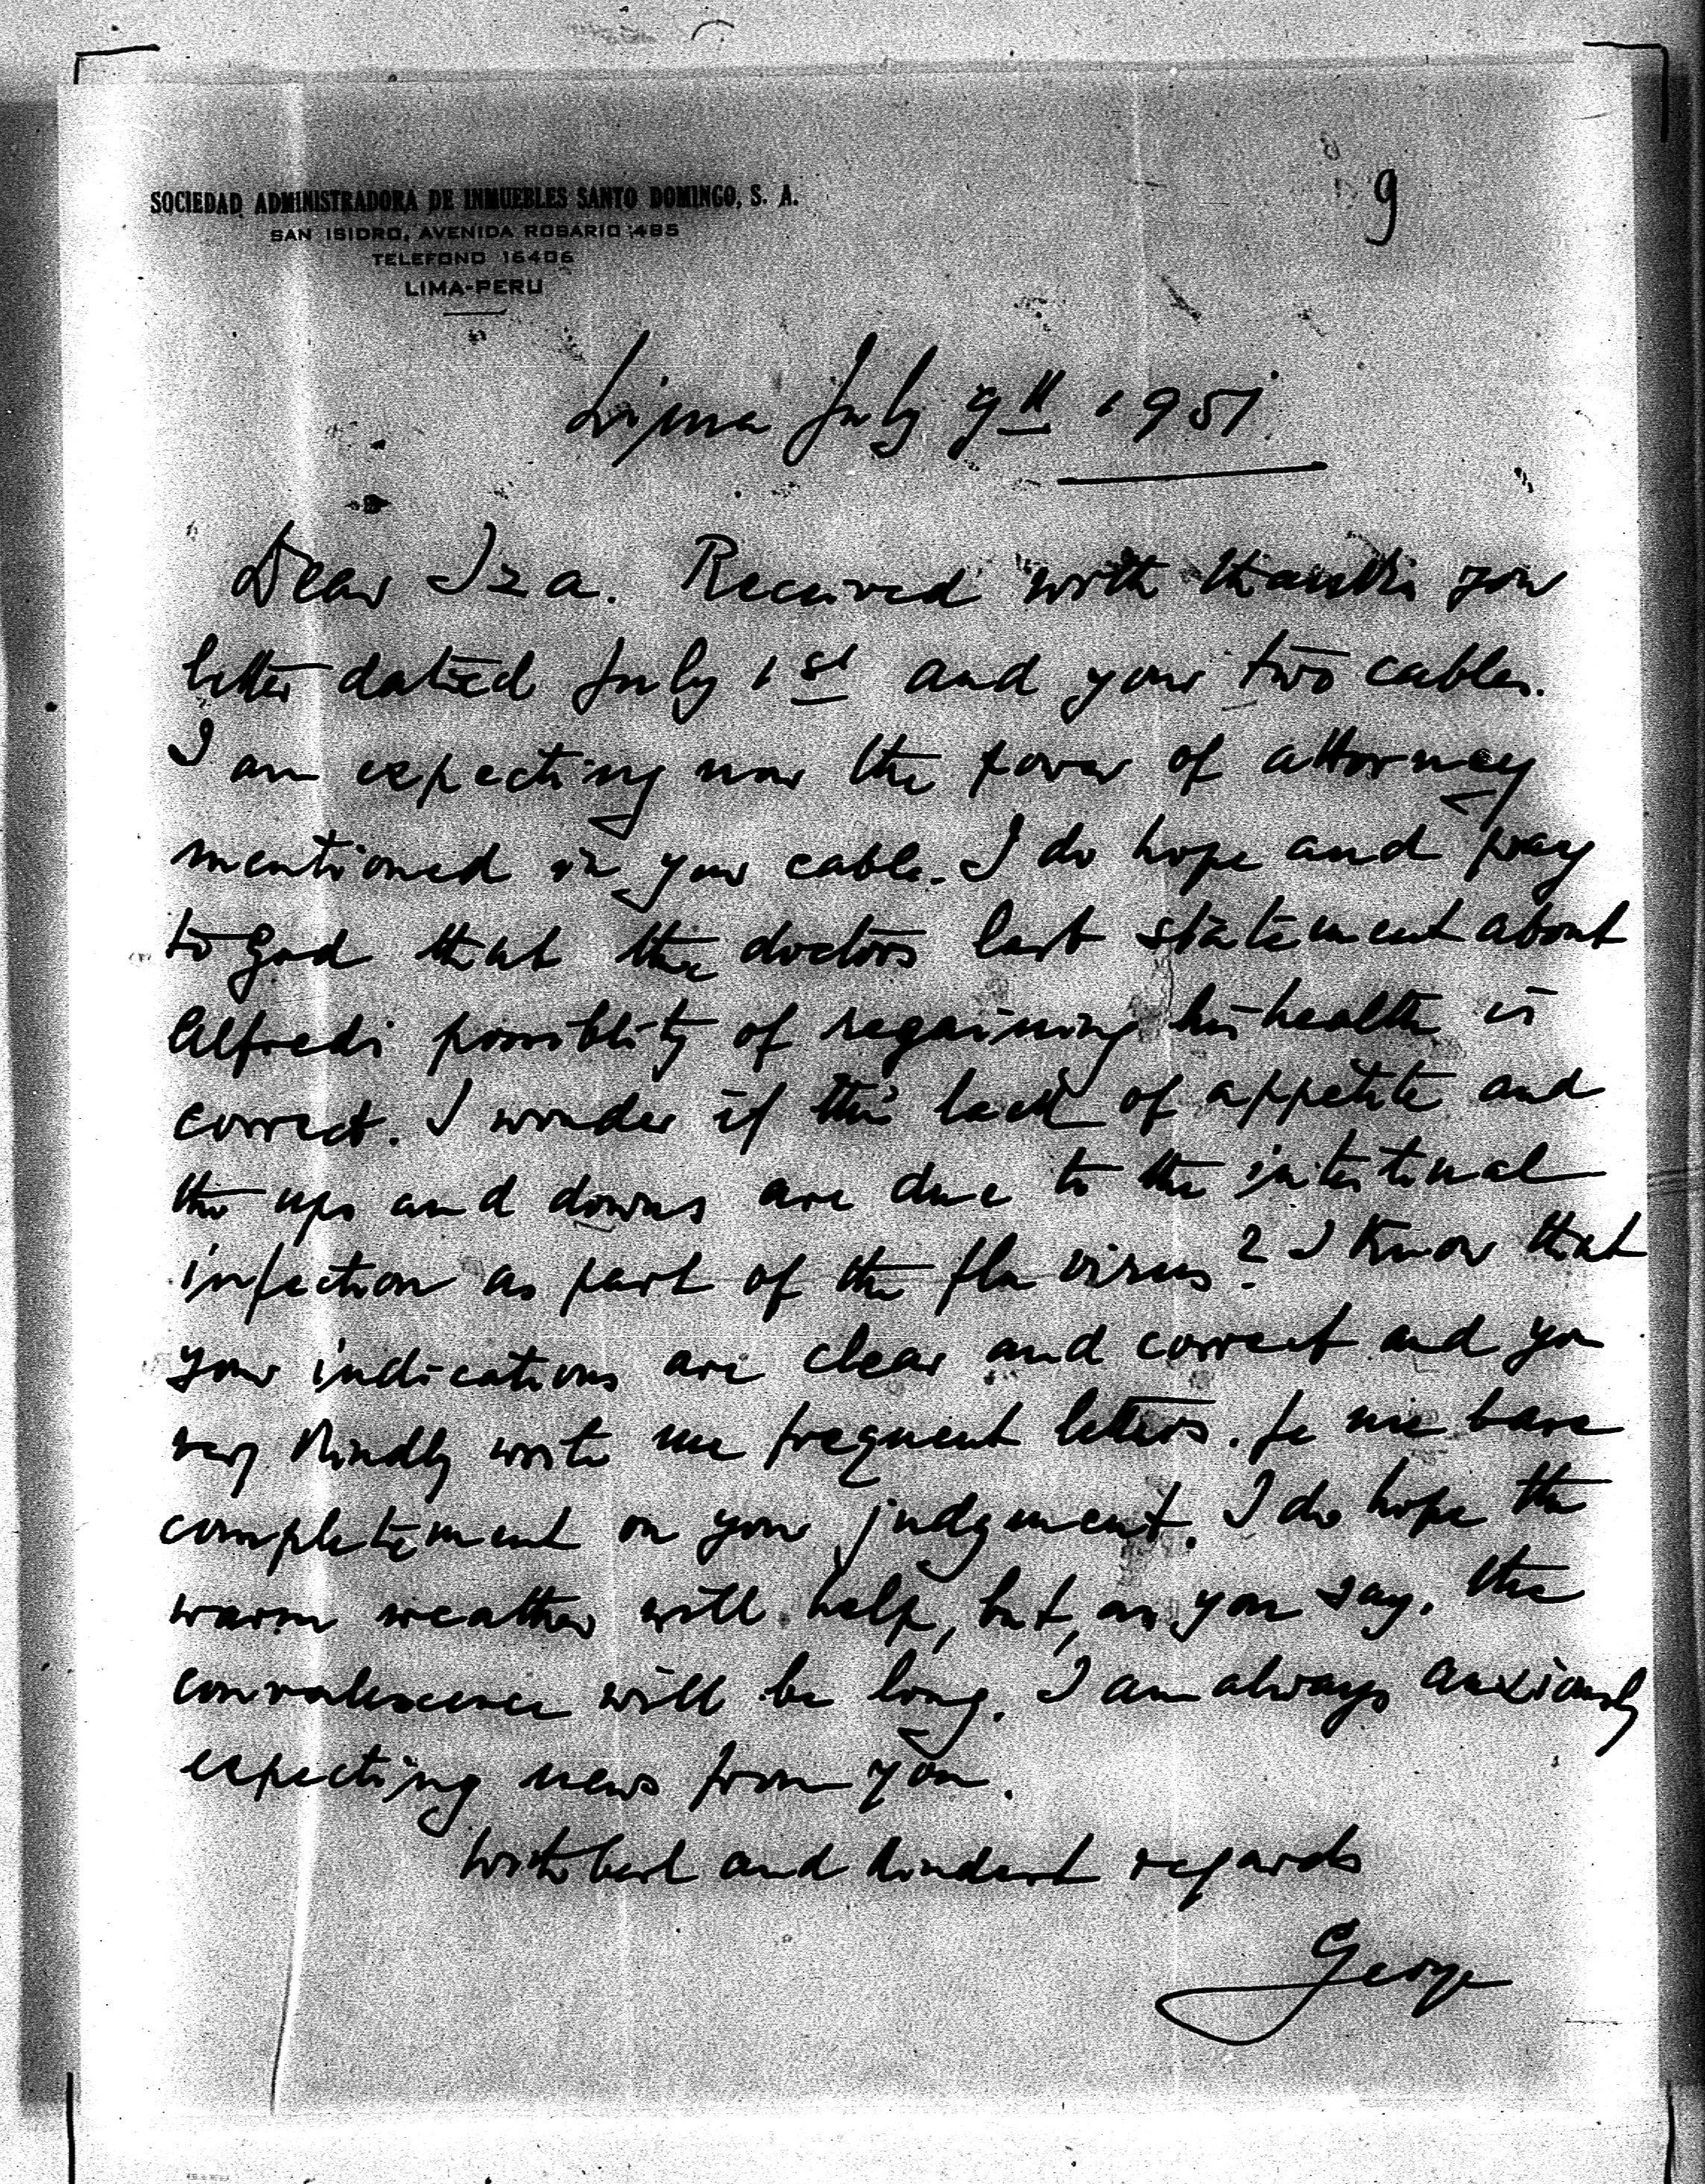 SOCIEDAD ADMINISTRADORA DE INMUEBLES SANTO DOMINGO, S. A.
SAN ISIDRO, AVENIDA ROSARIO 485
TELEFONO 16406
LIMA-PERU
9
Lima July 9th 1951
Dear Iza. Received with thanks your
letter dated July 1st and your two cables.
I am expecting now the power of attorney
mentioned in your cable. I do hope and pray
to God that the doctors last statement about
Alfreds possiblity of regaining his health is
correct. I wonder if the lack of appetite and
the ups and downs are due to the intestinal
infection as part of the flu virus? I know that
your indications are clear and correct and you
very kindly write me frequent letters. Je me base
completement on your judgment. I do hope the
warm weather will help, but, as you say, the
convalescence will be long. I am always anxiously
expecting news from you.
With best and kindest regards
George